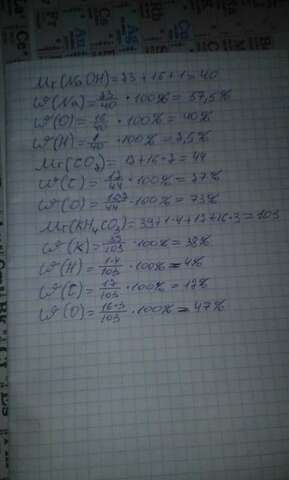 Mr(NaOH)=23+16+1=40
ω(Na)=23/40·100%=57,5%
ω(O)=16/40·100%=40%
ω(H)=1/40·100%=2,5%
Mr(CO2)=12+16·2=44
ω(C)=12/44·100%=27%
ω(O)=·100%=73%
Mr(KH4CO3)=39+1·4+12+16·3=103
ω(K)=39/103·100%=38%
ω(H)=1·4/103·100%=4%
ω(C)=12/103·100%=12%
ω(O)=16·3/103·100%=47%